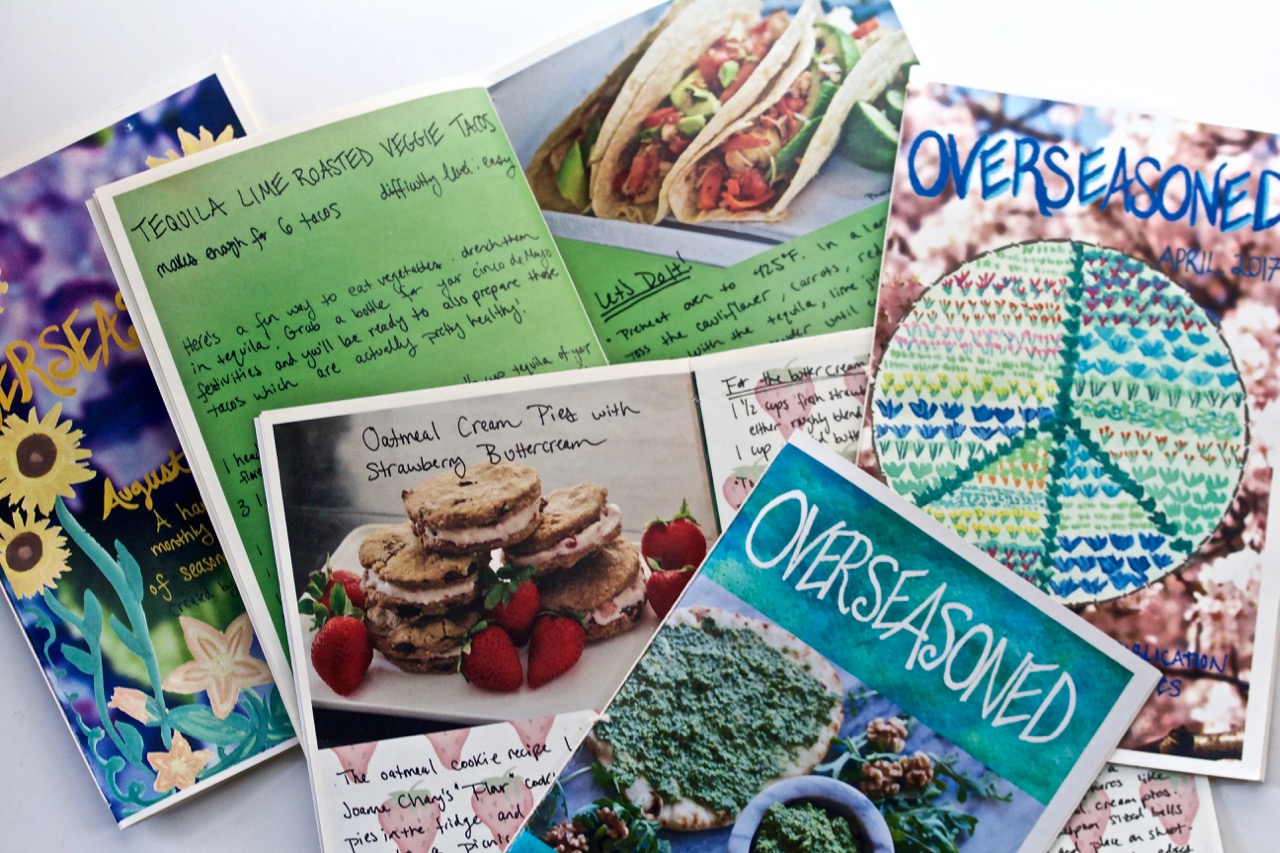 ERSEAS
August
A ha
monthly
of season
TEQUILA LIME ROASTED VEGGIE TACOS
makes enough for 6 tacos
difficulty level: easy
Here's a fun way to eat vegetables: drench them
in tequila! Grab a bottle for your Cinco de Mayo
festivities and you'll be ready to also prepare these
tacos which are actually pretty healthy!
tequila of your
Let's Do It!
• Preheat oven to 425°F. In a lar
toss the cauliflower, carrots, red
with the tequila, lime j
until
Oatmeal Cream Pies with
Strawberry Buttercream
For the buttercream
1 1/2 cups fresh straw
either roughly blend
1 cup
The oatmeal cookie recipe I
Joanne Chang's "Flour" cook
pies in the fridge and
a picnic
OVERSEASONED
APRIL 2017
LICATION
ES
OVERSEASONED
like
cream
sized balls
and place on sheet.